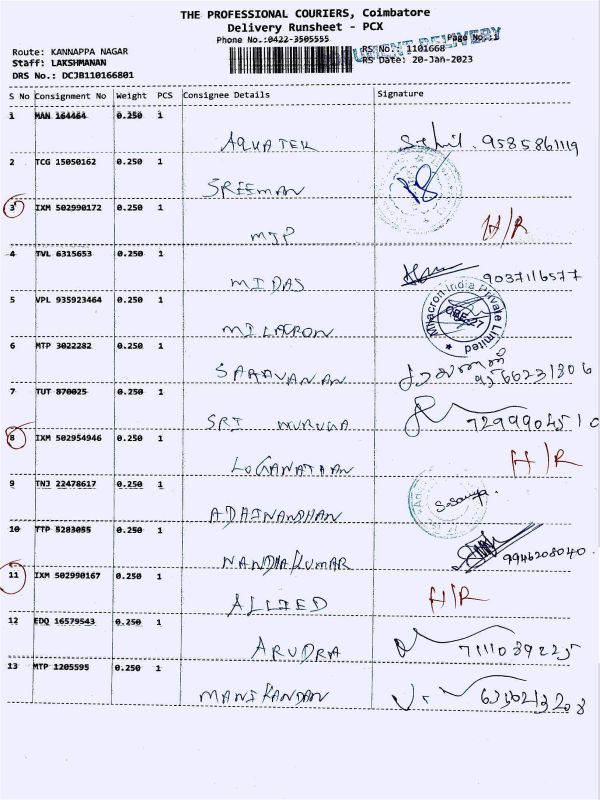 THE PROFESSIONAL COURIERS, Coimbatore
Delivery Runsheet - PCX
Phone No.:0422-3505555
Page No.:1
DOCUMENT DELIVERY
Route: KANNAPPA NAGAR
RS No.: 1101668
Staff: LAKSHMANAN
RS Date: 20-Jan-2023
DRS No.: DCJB110166801
S No Consignment No Weight PCS Consignee Details Signature
1 MAN 164464 0.250 1
AQUATEK 9585861119
2 TCG 15050162 0.250 1
SREEMAN
3 IXM 502990172 0.250 1
MTP H/R
4 TVL 6315653 0.250 1
MIDAS 9037116577
5 VPL 935923464 0.250 1
MILACRON Milacron India Private Limited
6 MTP 3022282 0.250 1
SARAVANAN 9566231306
7 TUT 870025 0.250 1
SRI MURUGA 7299904510
8 IXM 502954946 0.250 1
LOGANATAAN H/R
9 TNJ 22478617 0.250 1
ADAINANDHAN
10 TTP 5283055 0.250 1
NANDHAKUMAR 9946208040
11 IXM 502990167 0.250 1
ALLIED H/R
12 EDQ 16579543 0.250 1
ARUDRA 7111039225
13 MTP 1205595 0.250 1
MANIKANDAN